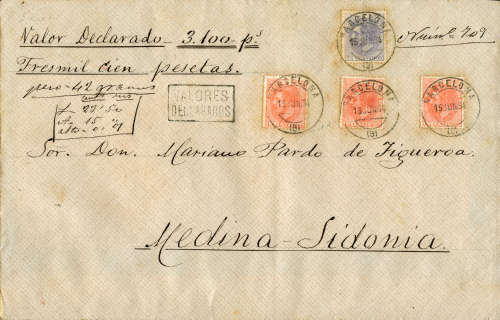 Valor Declarado 3.100 ps
Tresmil cien pesetas.
peso 42 gramos
VALORES
DECLARADOS
BARCELONA
15 JUN 84
(9)
BARCELONA
15 JUN 84
(9)
BARCELONA
15 JUN 84
(9)
BARCELONA
15 JUN 84
(9)
Sor. Don. Mariano Pardo de Figueroa.
Medina-Sidonia.